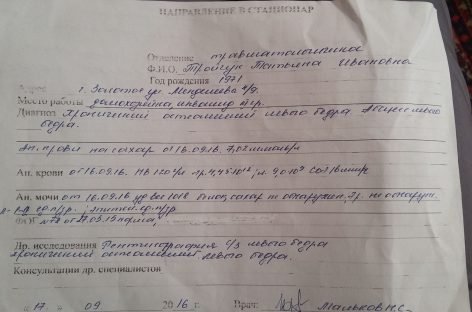 НАПРАВЛЕНИЕ В СТАЦИОНАР
Отделение травматологическое
Ф.И.О. Татьяна Ивановна
Год рождения 1971
Адрес г. Золотое ул.
Место работы домохозяйка, инвалид IIгр.
Диагноз Хронический остеомиелит левого бедра. Абсцесс левого
бедра.
Ан. крови на сахар от 16.09.16. 7,02 ммоль/л
Ан. крови от 16.09.16. НВ 120 г/л Эр. 4,45·10¹² л. 9,0·10⁹ СОЭ 16 мм/ч
Ан. мочи от 16.09.16 уд вес 1018 белок, сахар не обнаружен, Эр. не обнаруж.
п/зр; эпител. ед. п/зр
норма
Др. исследования Рентгенография с/з левого бедра
хронический остеомиелит левого бедра.
Консультации др. специалистов
" 17 " 09 2016 г. Врач: